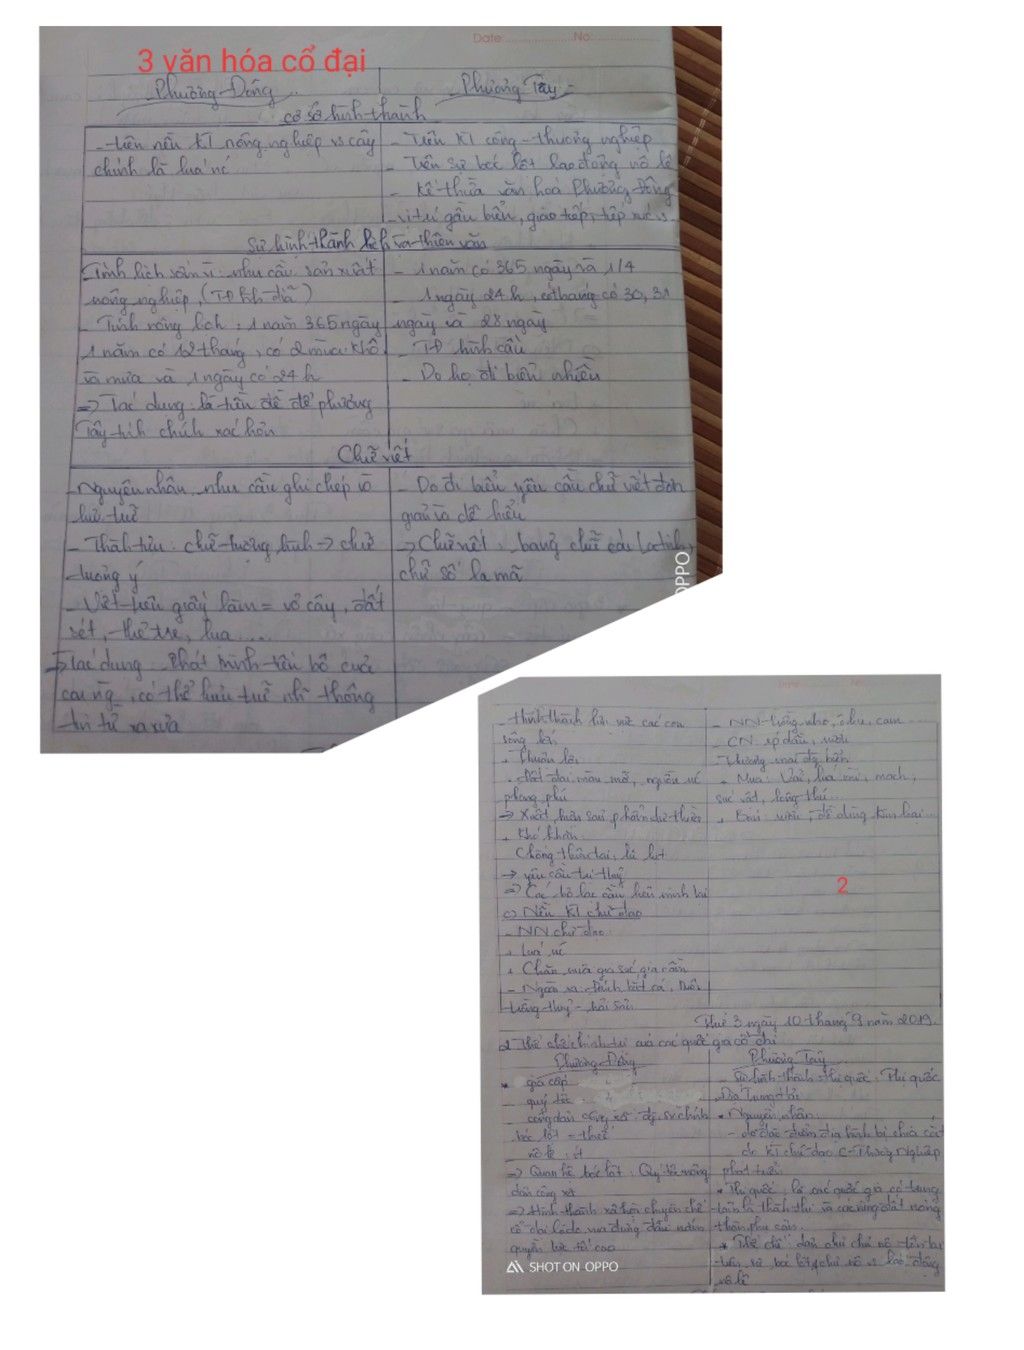 Date: No:
3 văn hóa cổ đại
Phương Đông
Phương Tây
cơ sở hình thành
- trên nền KT nông nghiệp vs cây
chính là lúa nc
- Trên KT công - thương nghiệp
- Trên sự bóc lột lao động nô lệ
- Kế thừa văn hoá Phương Đông
- vị trí gần biển, giao tiếp, tiếp xúc
Sự hình thành lịch và thiên văn
- Tính lịch sớm vì nhu cầu sản xuất
nông nghiệp, (TĐ hình đĩa)
- Tính nông lịch: 1 năm 365 ngày
1 năm có 12 tháng, có 2 mùa: khô
và mưa và 1 ngày có 24h
=> Tác dụng: là tiền đề để phương
Tây tính chính xác hơn
- 1 năm có 365 ngày và 1/4
- 1 ngày 24h, có tháng có 30, 31
ngày và 28 ngày
- TĐ hình cầu
- Do họ đi biển nhiều
Chữ viết
- Nguyên nhân: nhu cầu ghi chép và
lưu trữ
- Thành tựu: chữ tượng hình -> chữ
tượng ý
- Viết trên giấy làm = vỏ cây, đất
sét, thẻ tre, lụa ....
=> Tác dụng: Phát minh tiến bộ của
con ng, có thể lưu trữ thông
tin từ xa xưa
- Do đi biển yêu cầu chữ viết đơn
giản và dễ hiểu
-> Chữ viết: bảng chữ cái
chữ số la mã
OPPO
- Hình thành lưu vực các con
sông lớn
+ Thuận lợi
. Đất đai màu mỡ, nguồn nc
phong phú
=> Xuất hiện sản phẩm dư thừa
+ Khó khăn
Chống thiên tai, lũ lụt
-> yêu cầu trị thuỷ
=> Các bộ lạc cần liên minh lại
c) Nền KT chủ đạo
- NN chủ đạo
+ Lúa nc
+ Chăn nuôi gia súc, gia cầm
- Ngoài ra: đánh bắt cá, nuôi
trồng thuỷ - hải sản
- NN trồng nho, ô liu, cam
- CN ép dầu, rượu
- Thương mại đg biển
+ Mua: Vải, lúa mì, mạch,
súc vật, lông thú...
+ Bán: rượu, đồ dùng kim loại...
2
Thứ 3 ngày 10 tháng 9 năm 2019.
2 Thể chế chính trị của các quốc gia cổ đại
Phương Đông
Phương Tây
* giai cấp
- quý tộc
- nông dân công xã
bóc lột = thuế
nô lệ: ít
=> Quan hệ bóc lột: Quý tộc nông
dân công xã
=> Hình thành xã hội chuyên chế
cổ đại do vua đứng đầu nắm
quyền lực tối cao
- Sự hình thành thị quốc: Thị quốc
Địa Trung Hải
* Nguyên nhân:
- do đặc điểm địa hình bị chia cắt
do KT chủ đạo C-Thương Nghiệp
phát triển
* Thị quốc: là các quốc gia có trung
tâm là thành thị và các vùng đất nông
thôn phụ cận.
* Thể chế: dân chủ chủ nô tồn tại
trên sự bóc lột chủ nô vs lao động
nô lệ
SHOT ON OPPO